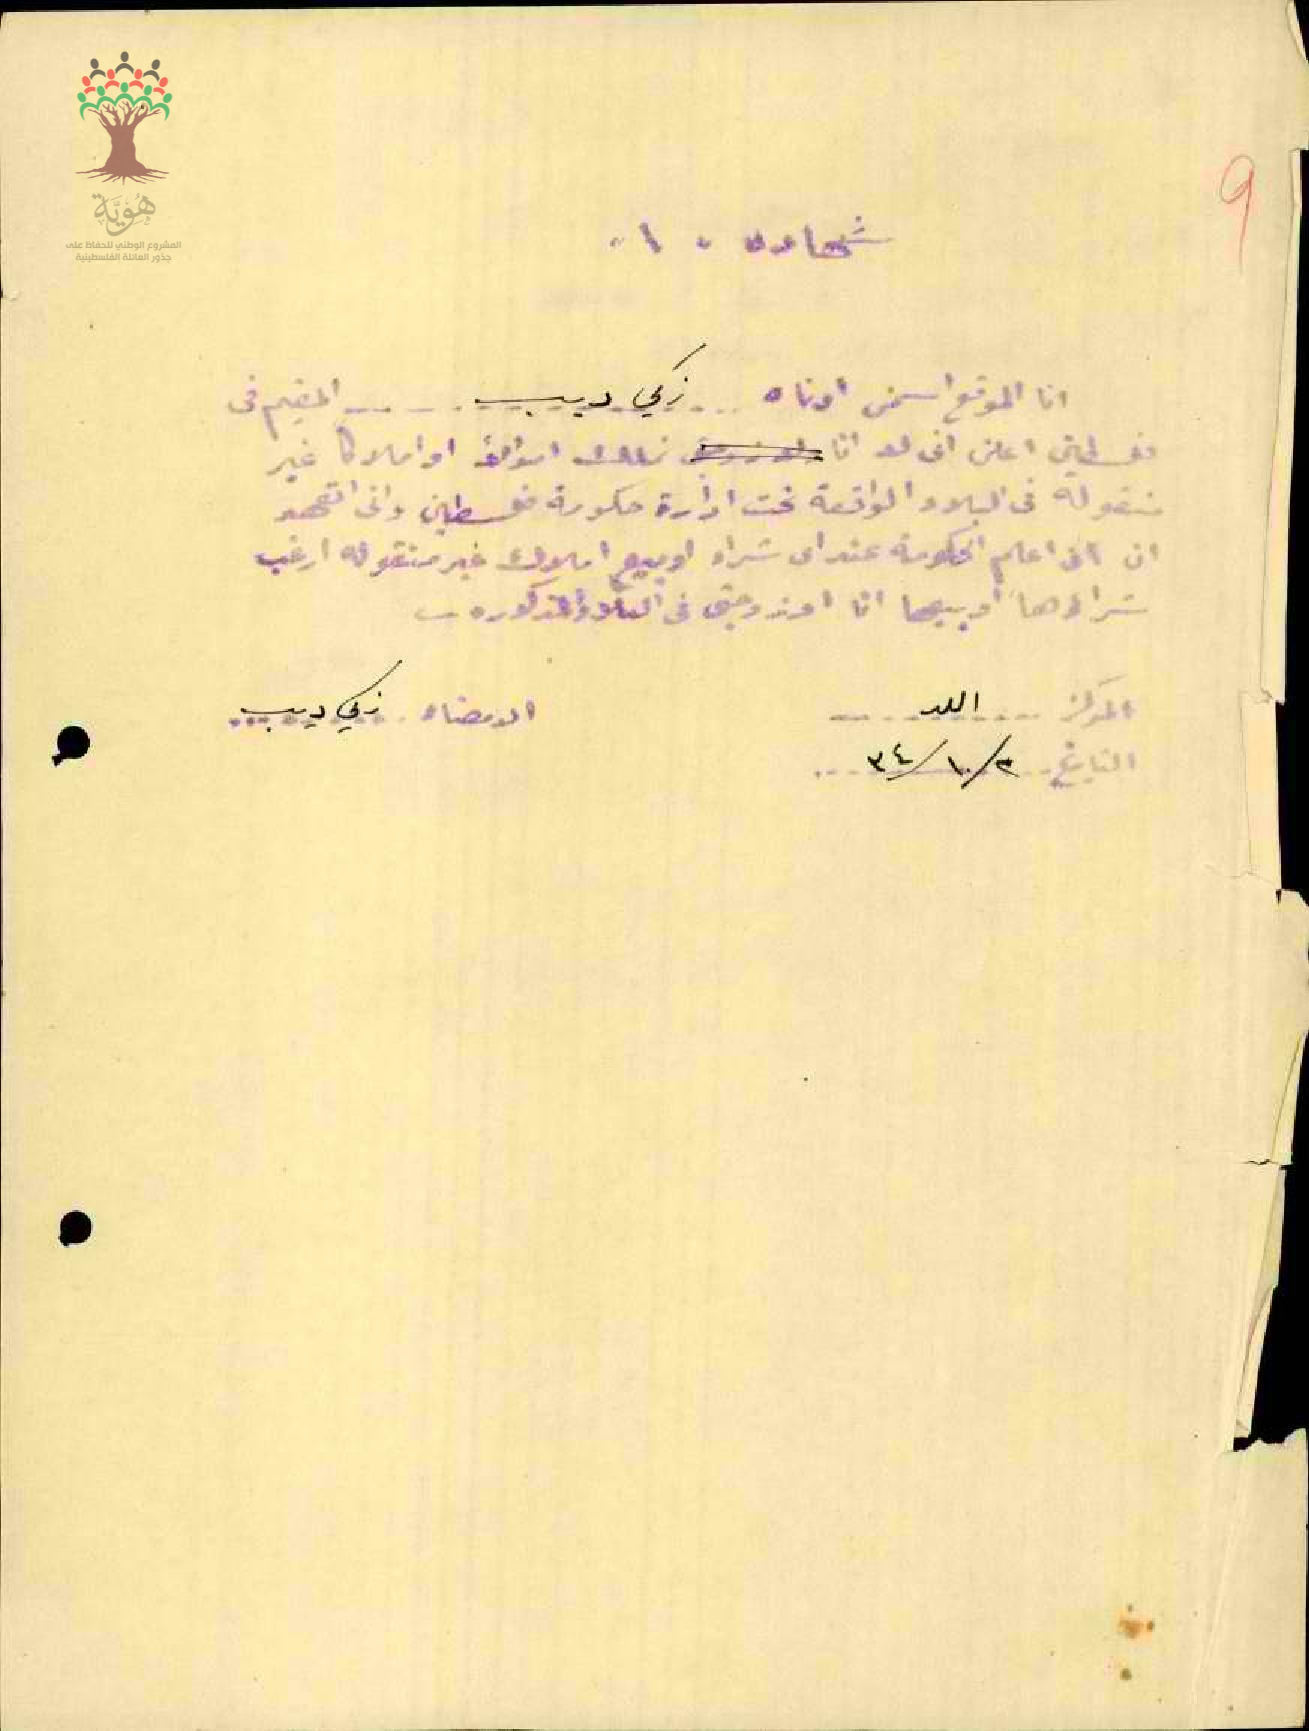 هُوِيَّة
المشروع الوطني للحفاظ على
جذور العائلة الفلسطينية
9
شهادة ٠ ١ ٠
انا الموقع اسمى ادناه زكي ديب المقيم فى
فلسطين اعلن انى لا انا ولا زوجتى نملك اموالا او املاكا غير
منقولة فى البلاد الواقعة تحت ادارة حكومة فلسطين وانى اتعهد
ان اعلم الحكومة عند اى شراء او بيع املاك غير منقوله ارغب
شراءها او بيعها انا او زوجتى فى البلاد المذكوره
المركز اللد
الامضاء زكي ديب
التاريخ ٢/١٠/٣٤